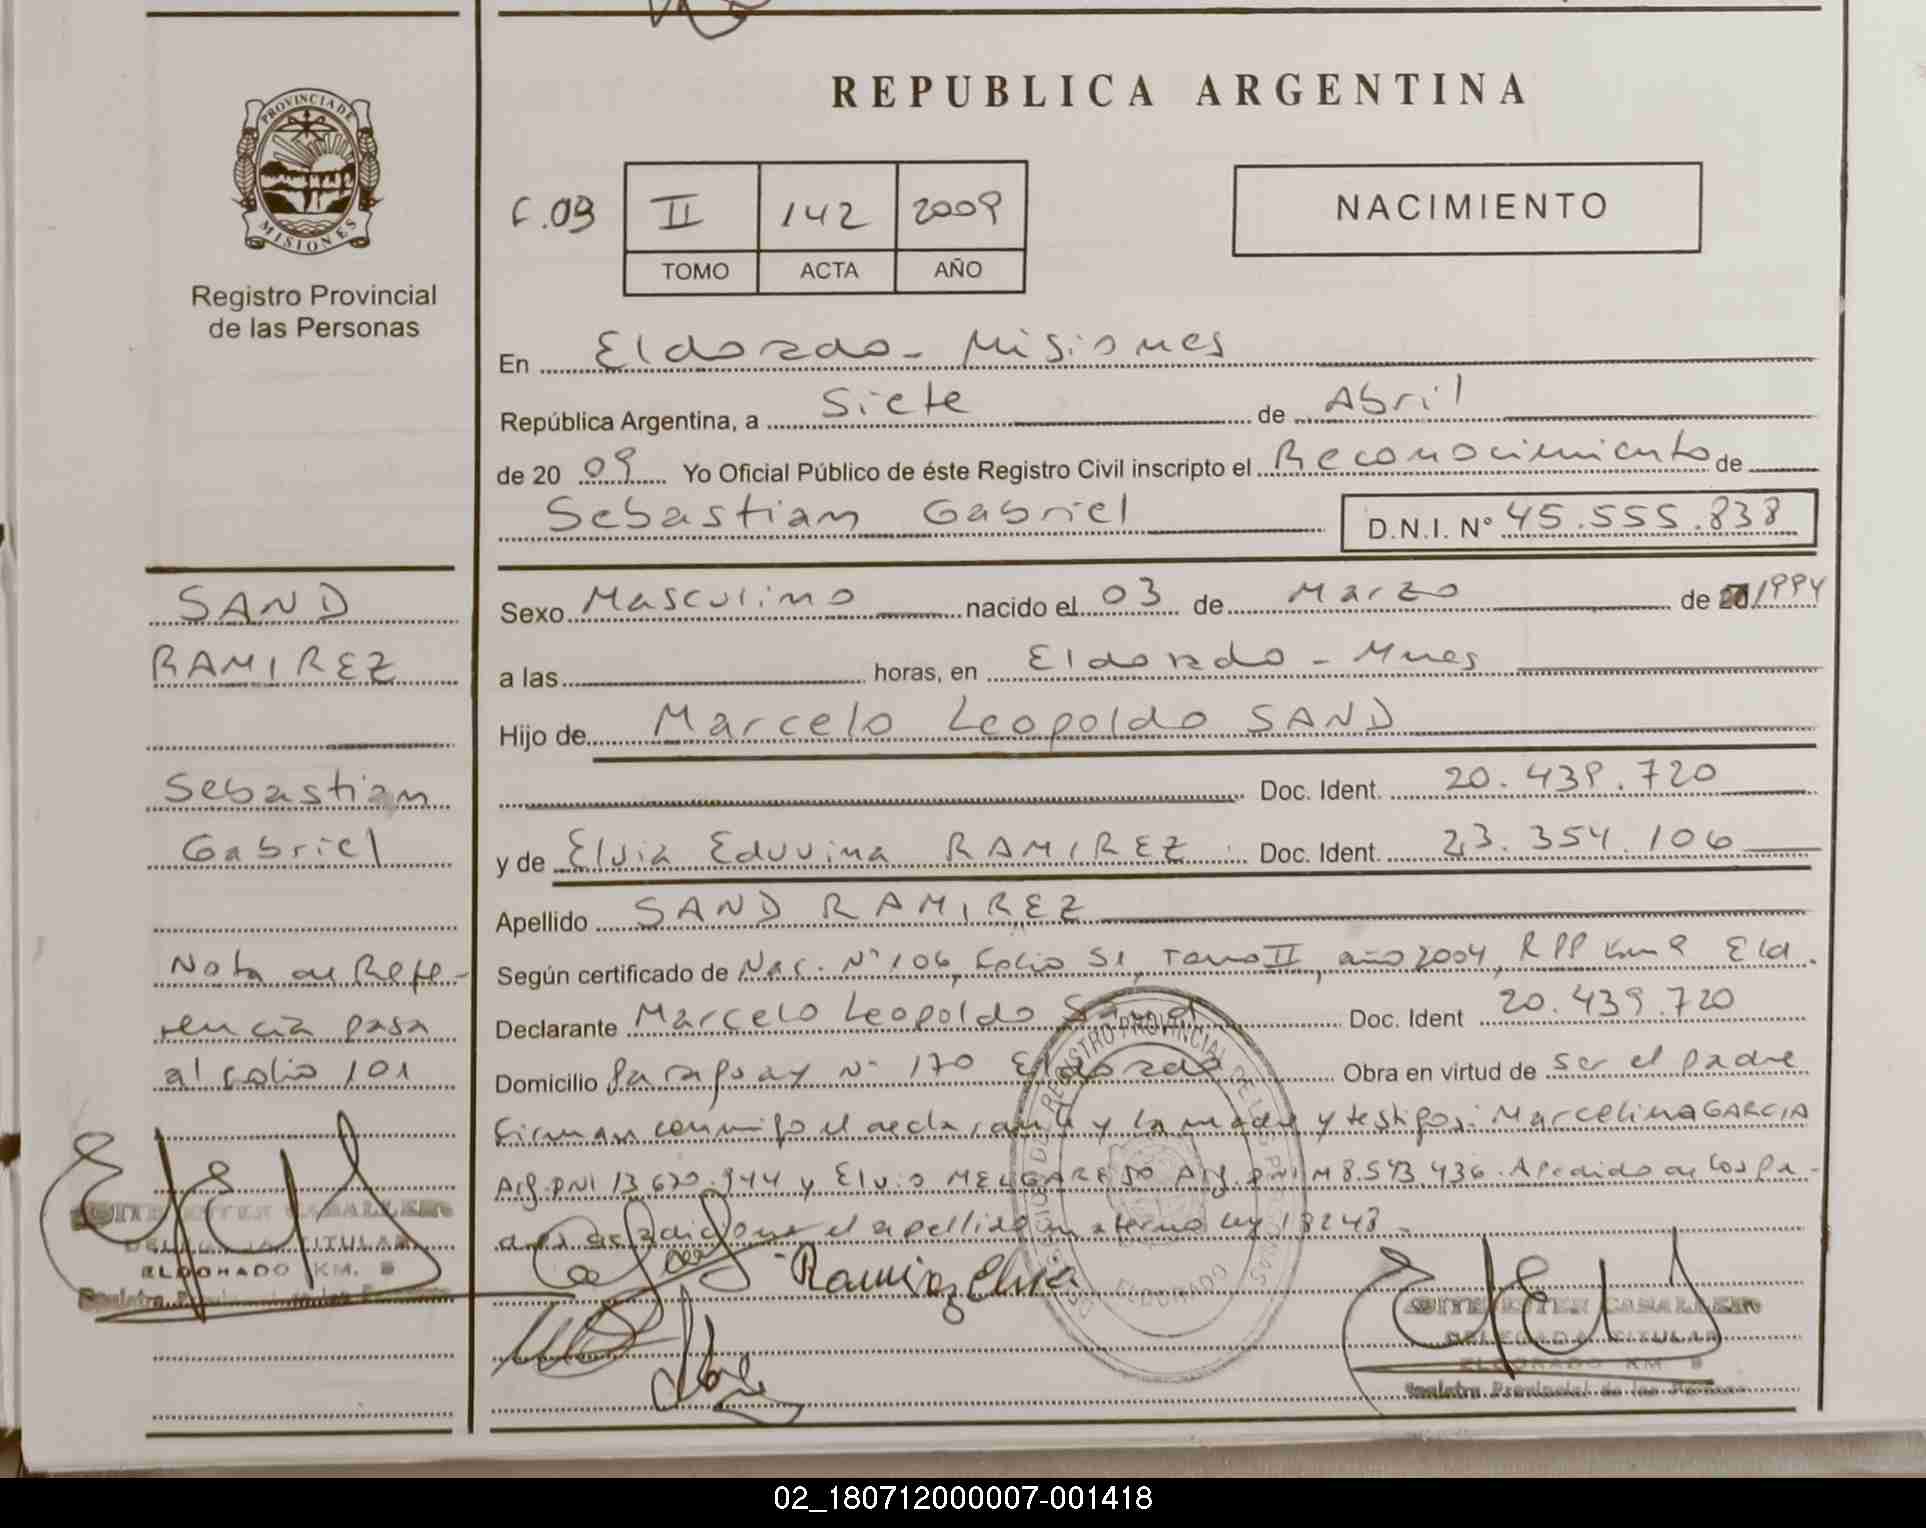 REPUBLICA ARGENTINA
PROVINCIA DE
MISIONES
Registro Provincial
de las Personas
F.09 II 142 2009
TOMO ACTA AÑO
NACIMIENTO
En Eldorado - Misiones
República Argentina, a Siete de Abril
de 20 09 Yo Oficial Público de éste Registro Civil inscripto el Reconocimiento de
Sebastian Gabriel D.N.I. N° 45.555.838
SAND
RAMIREZ
Sebastian
Gabriel
Nota de Refe-
rencia pasa
al folio 101
Sexo Masculino nacido el 03 de Marzo de 1994
a las horas, en Eldorado - Mnes
Hijo de Marcelo Leopoldo SAND
Doc. Ident. 20.439.720
y de Elvia Eduvina RAMIREZ Doc. Ident. 23.354.106
Apellido SAND RAMIREZ
Según certificado de Nac. N° 106, Folio 51, Tomo II, año 2004, RPP km 9 Eld.
Declarante Marcelo Leopoldo Sand Doc. Ident 20.439.720
Domicilio Paraguay N° 170 Eldorado Obra en virtud de ser el padre
Firman conmigo el declarante y la madre y testigos: Marcelina GARCIA
Arg. DNI 13.670.944 y Elvio MELGAREJO Arg. DNI M 8.543.436. A pedido de los pa-
dres se adiciona el apellido materno ley 18248.-
Ramirez Elvia
REGISTRO PROVINCIAL DE LAS PERSONAS
ELDORADO
ESTER CABALLERO
DELEGADA TITULAR
ELDORADO KM.
Registro Provincial de las Personas
ESTER CABALLERO
DELEGADA TITULAR
ELDORADO KM.
Registro Provincial de las Personas
02_180712000007-001418